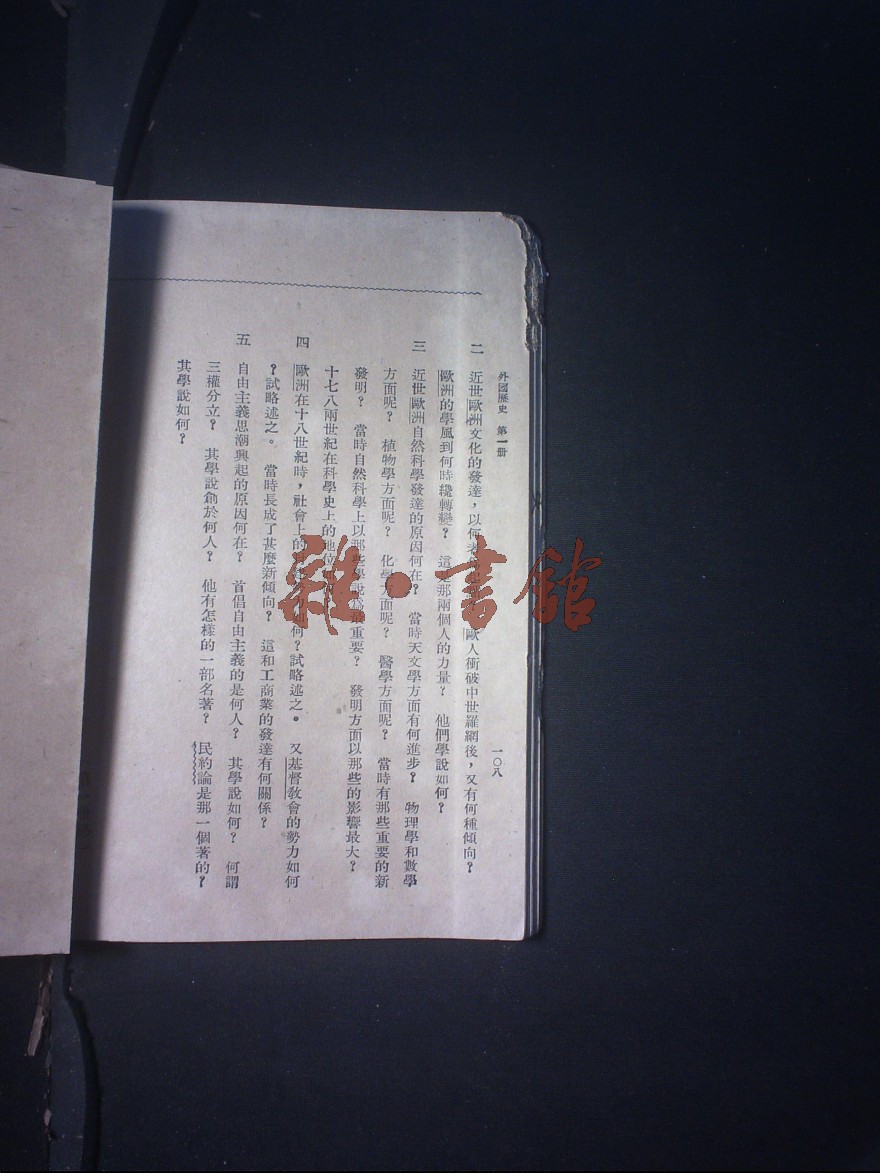 外國歷史 第一册
一〇八
二 近世歐洲文化的發達，以何 歐人衝破中世羅網後，又有何種傾向？
歐洲的學風到何時纔轉變？ 這 那兩個人的力量？ 他們學說如何？
三 近世歐洲自然科學發達的原因何在？ 當時天文學方面有何進步？ 物理學和數學
方面呢？ 植物學方面呢？ 化學方面呢？ 醫學方面呢？ 當時有那些重要的新
發明？ 當時自然科學上以那些學說爲最重要？ 發明方面以那些的影響最大？
十七八兩世紀在科學史上的地位
四 歐洲在十八世紀時，社會上的 如何？試略述之。 又基督敎會的勢力如何
？試略述之。 當時長成了甚麼新傾向？ 這和工商業的發達有何關係？
五 自由主義思潮興起的原因何在？ 首倡自由主義的是何人？ 其學說如何？ 何謂
三權分立？ 其學說創於何人？ 他有怎樣的一部名著？ 民約論是那一個著的？
其學說如何？
雜·書館